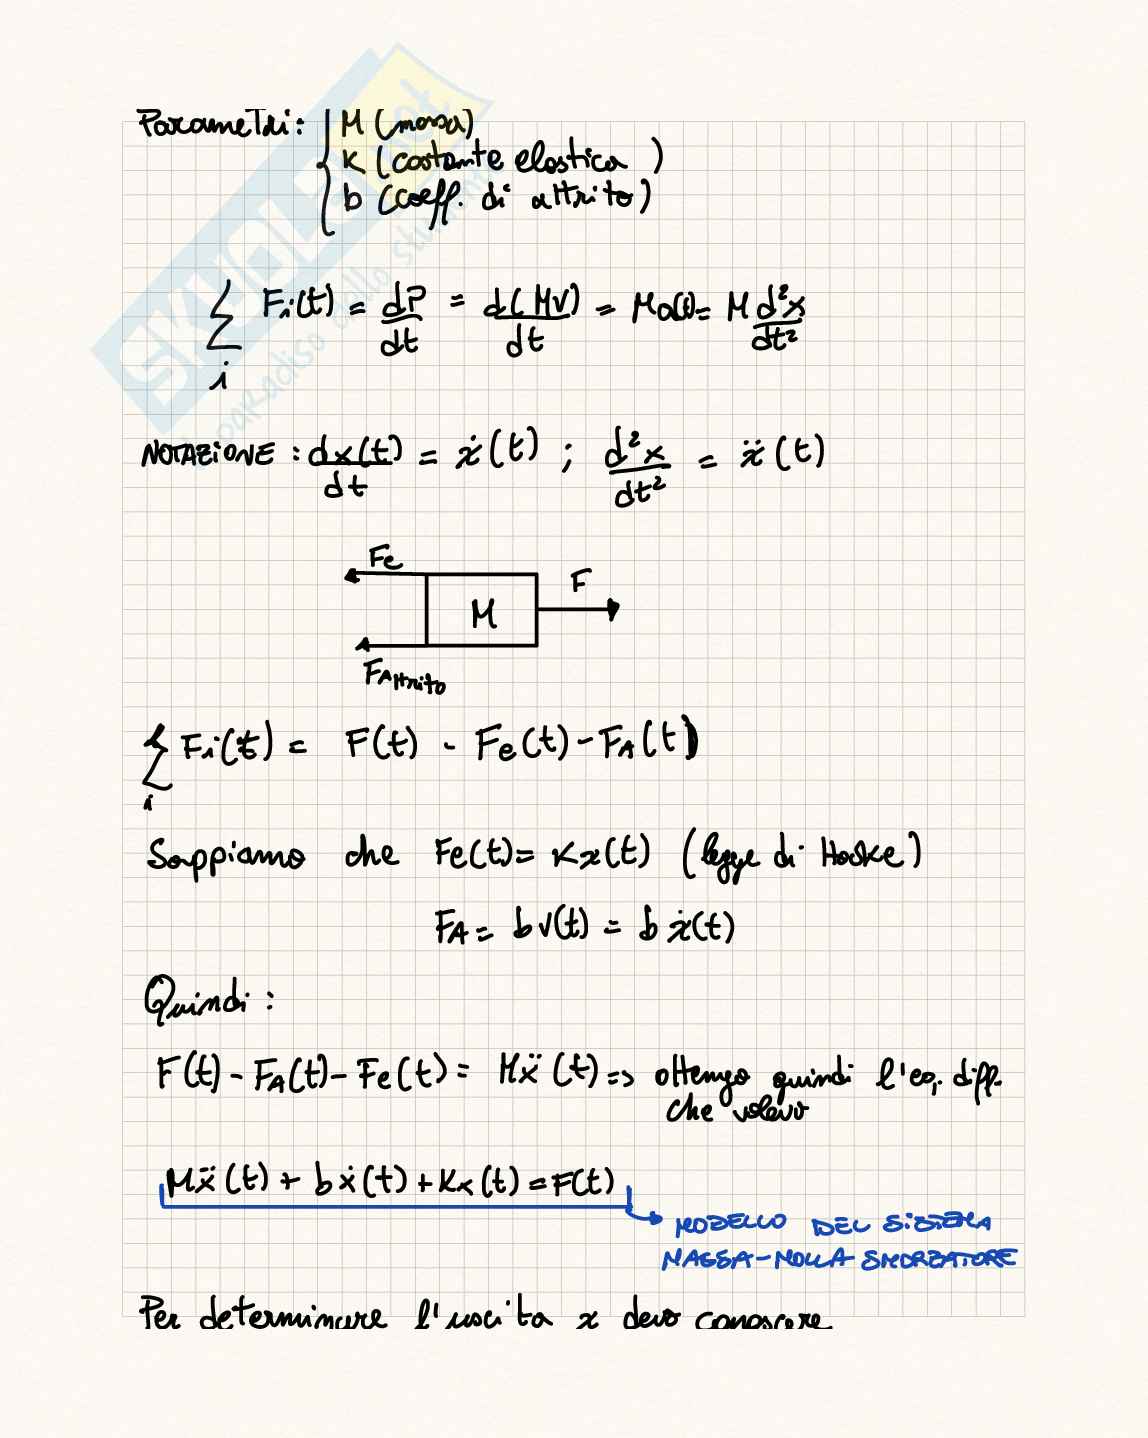 Parametri: { M (massa)
K (costante elastica)
b (coeff. di attrito)
∑_i Fi(t) = dP/dt = d(MV)/dt = Ma(t) = M d²x/dt²
NOTAZIONE : dx(t)/dt = ẋ(t) ; d²x/dt² = ẍ(t)
Fe
F
M
FAttrito
∑_i Fi(t) = F(t) - Fe(t) - FA(t)
Sappiamo che Fe(t) = Kx(t) (legge di Hooke)
FA = bv(t) = bẋ(t)
Quindi :
F(t) - FA(t) - Fe(t) = Mẍ(t) => ottengo quindi l'eq. diff.
che volevo
Mẍ(t) + bẋ(t) + Kx(t) = F(t)
MODELLO DEL SISTEMA
MASSA-MOLLA-SMORZATORE
Per determinare l'uscita x devo conoscere
SKUOLA.net
paradiso dello studente